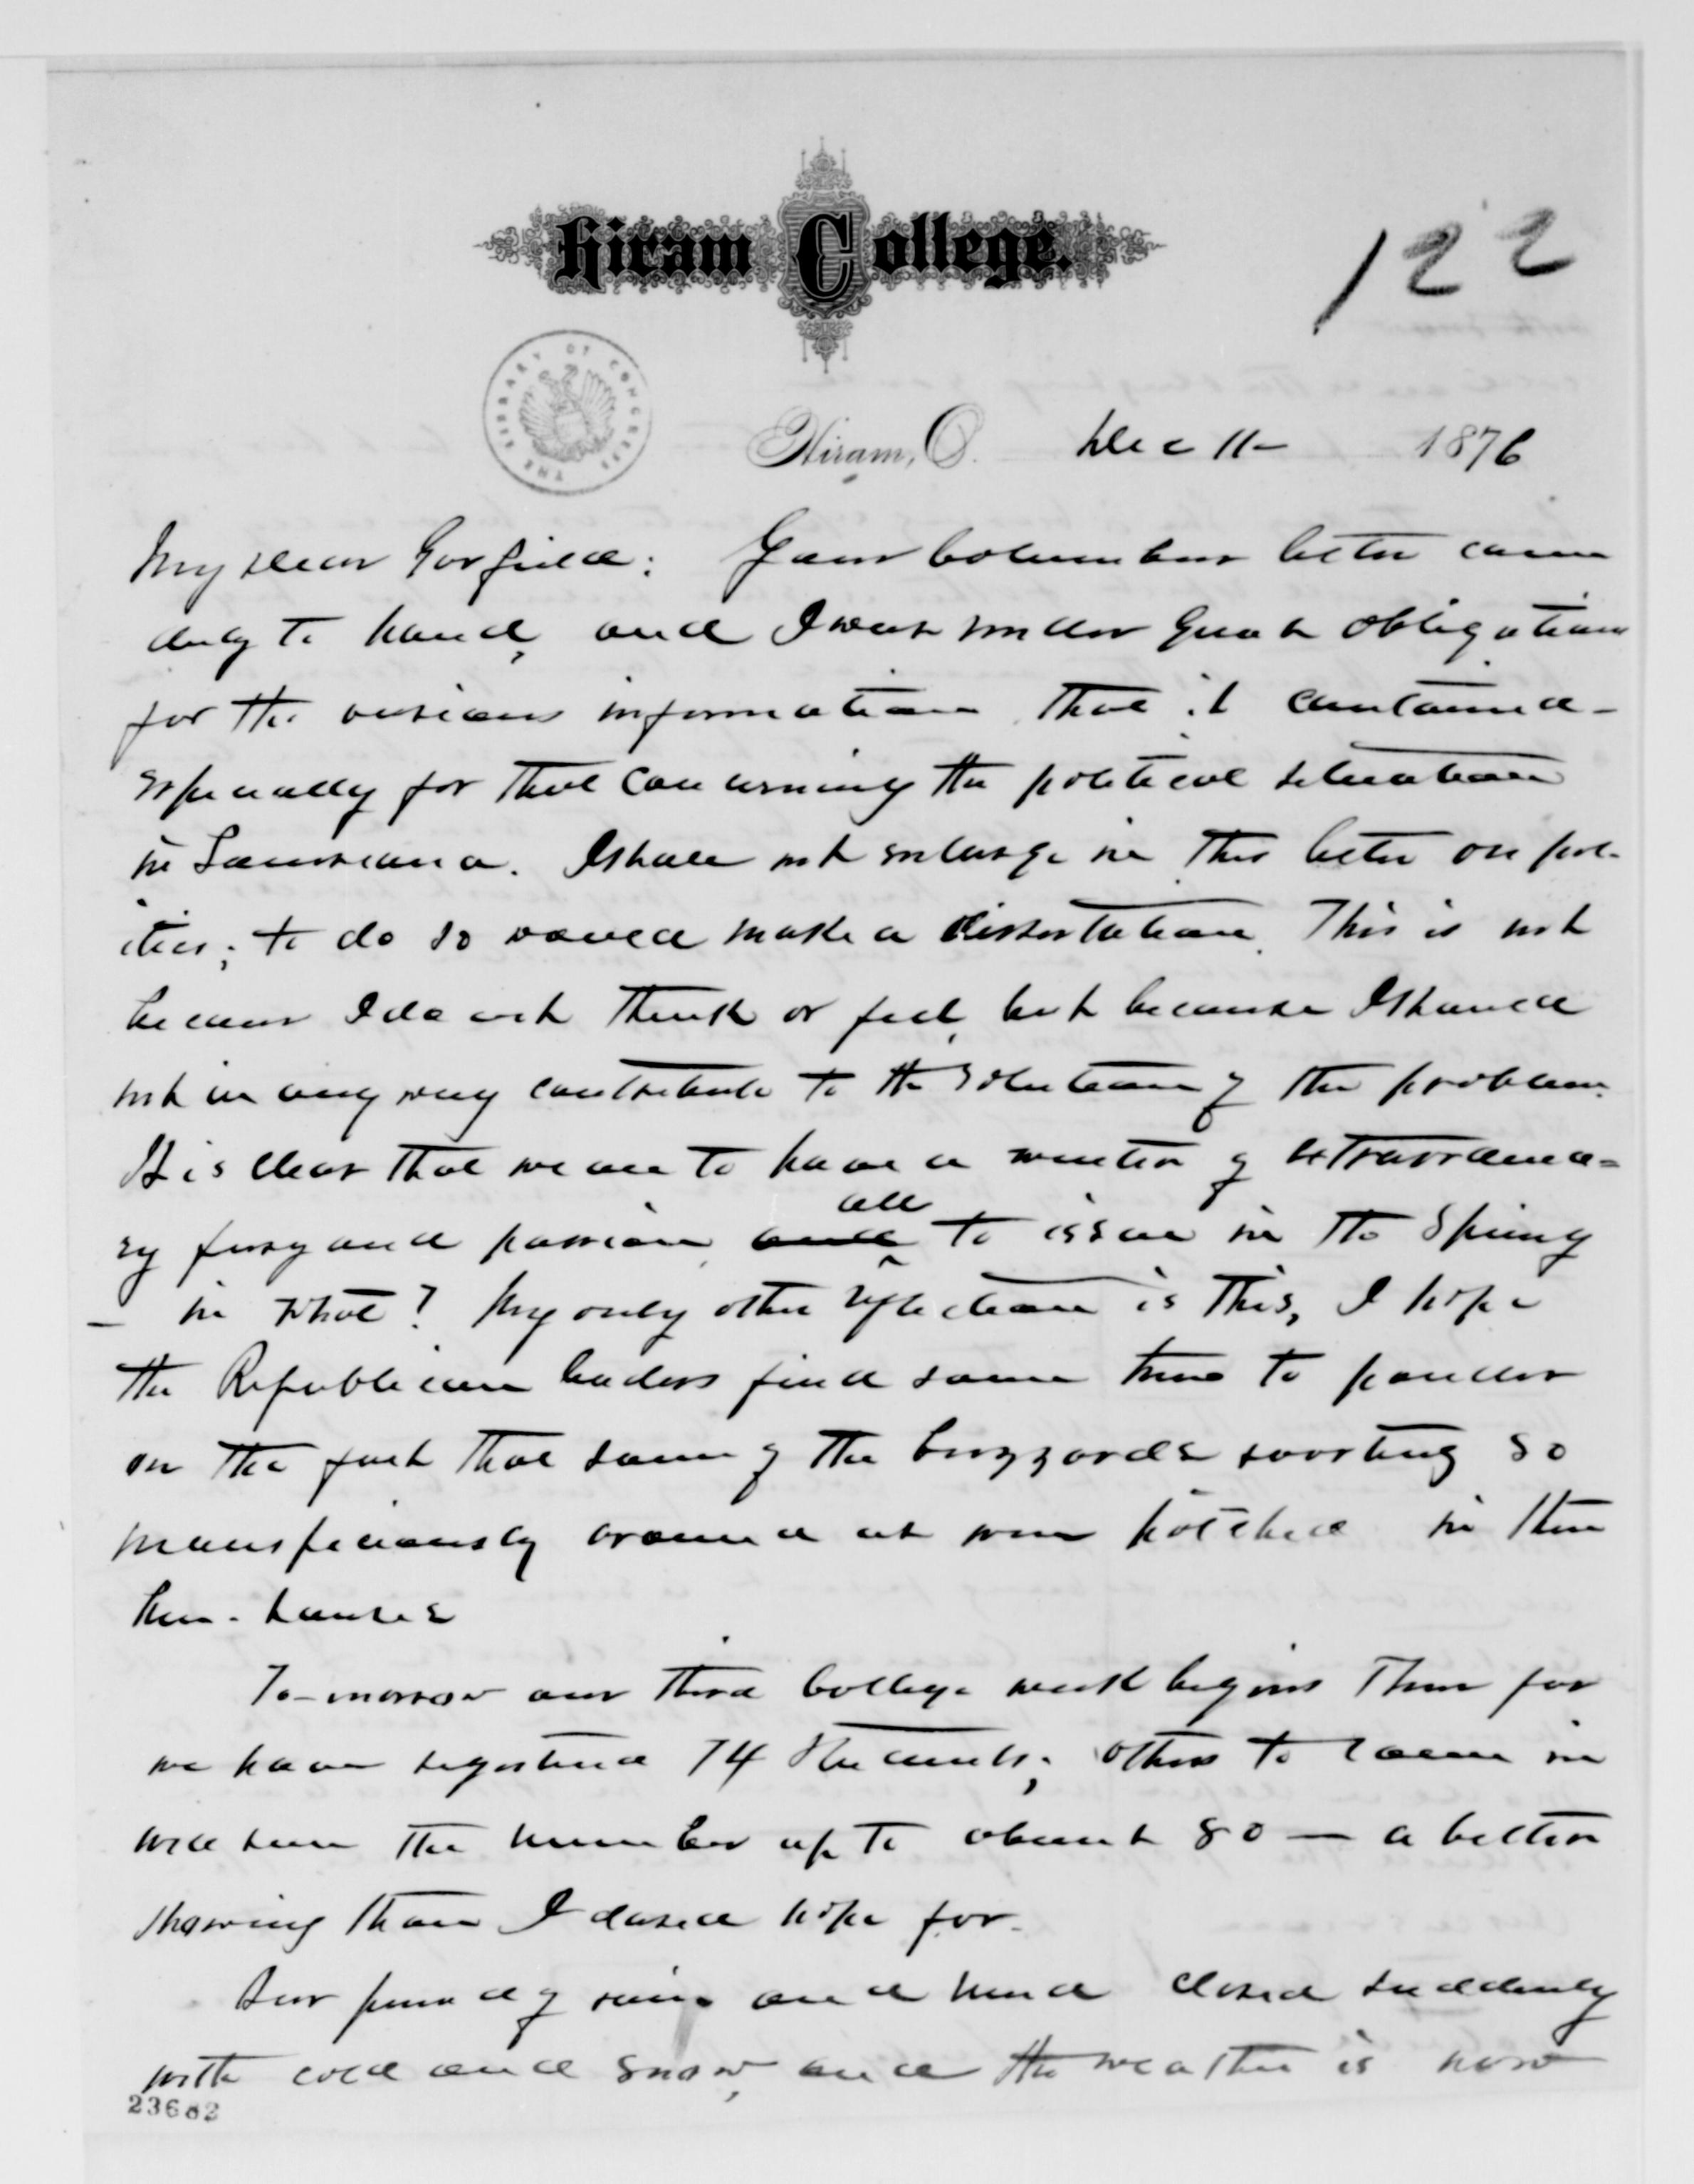 Hiram College.
122
THE LIBRARY OF CONGRESS
Hiram, O. Dec 11- 1876
My dear Garfield: Your Columbus letter came
duly to hand, and I was under great obligations
for the various information that it contained -
especially for that concerning the political situation
in Louisiana. I shall not enlarge in this letter on pol-
itics; to do so would make a dissertation. This is not
because I do not think or feel, but because I should
not in any way contribute to the solution of the problem.
It is clear that we are to have a winter of extraordina-
ry fury and passion, all to issue in the Spring
- in what? My only other reflection is this, I hope
the Republican leaders find some time to ponder
on the fact that some of the buzzards roosting so
around at were hatched in their
hen-houses
To-morrow our third College week begins Thus far
we have registered 74 students; others to come in
will run the number up to about 80 — a better
showing than I dared hope for.
Our period of rain and mud closed suddenly
with cold and snow, and the weather is now
23682